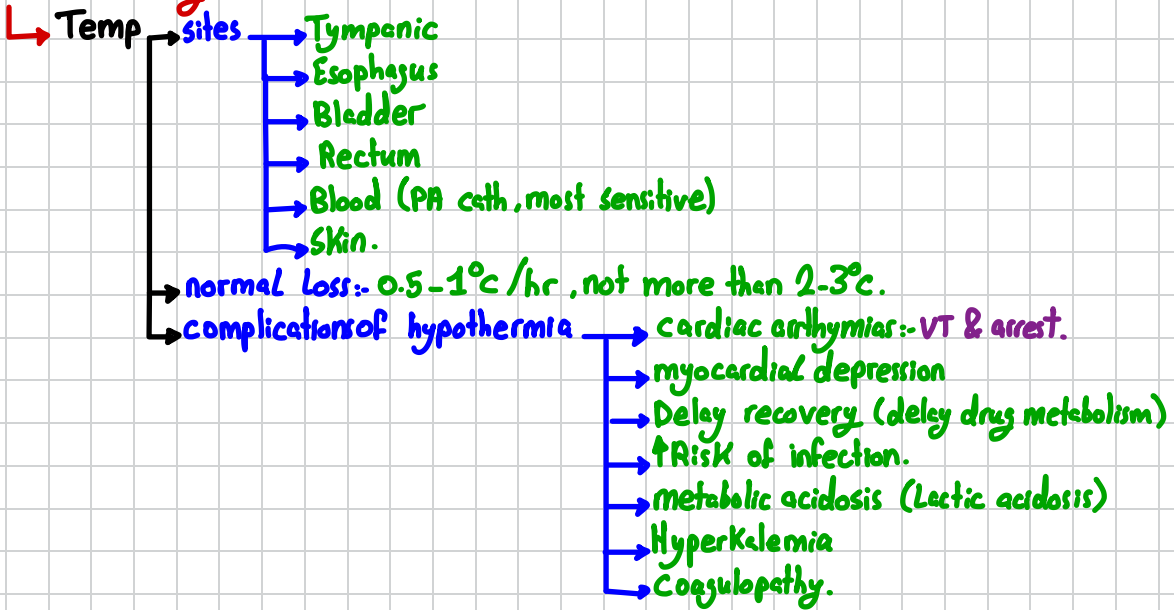 Temp sites Tympanic
Esophagus
Bladder
Rectum
Blood (PA cath, most sensitive)
Skin.
normal Loss:- 0.5-1°c/hr, not more than 2-3°c.
complication of hypothermia cardiac arrhymias:- VT & arrest.
myocardial depression
Delay recovery (delay drug metabolism)
↑Risk of infection.
metabolic acidosis (Lactic acidosis)
Hyperkalemia
Coagulopathy.